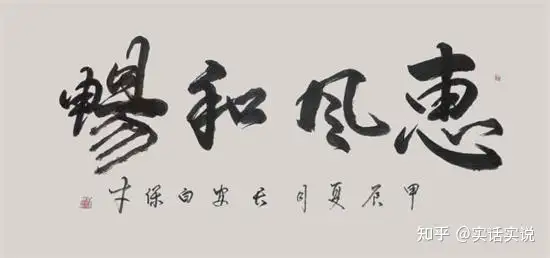 惠风和暢
甲辰夏月长安白保
知乎 @实话实说